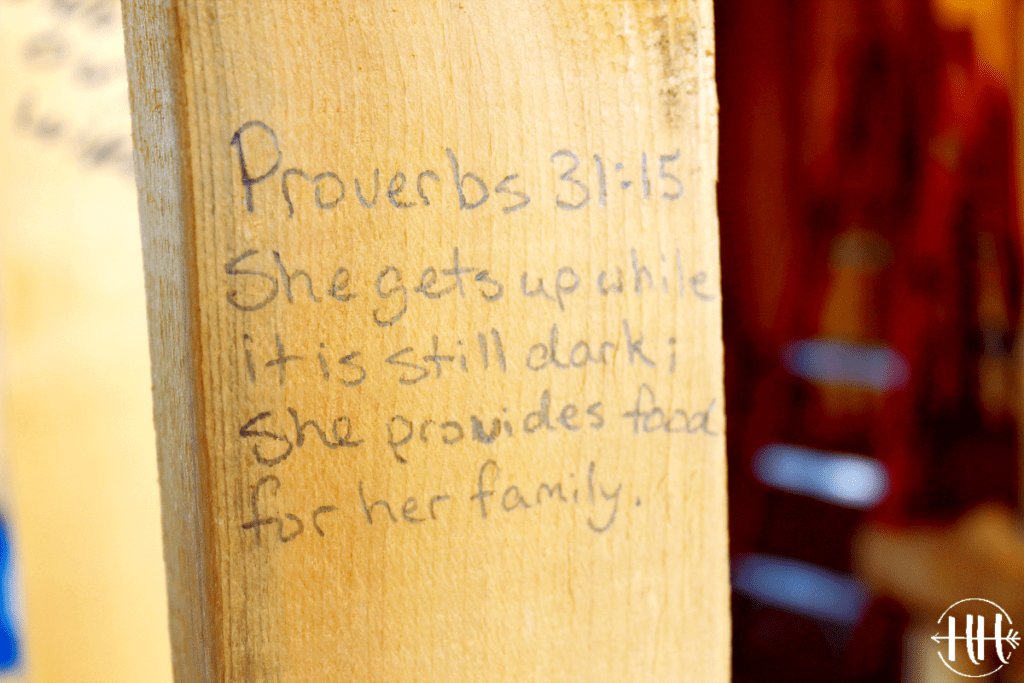 Proverbs 31:15
She gets up while
it is still dark;
she provides food
for her family.
HH